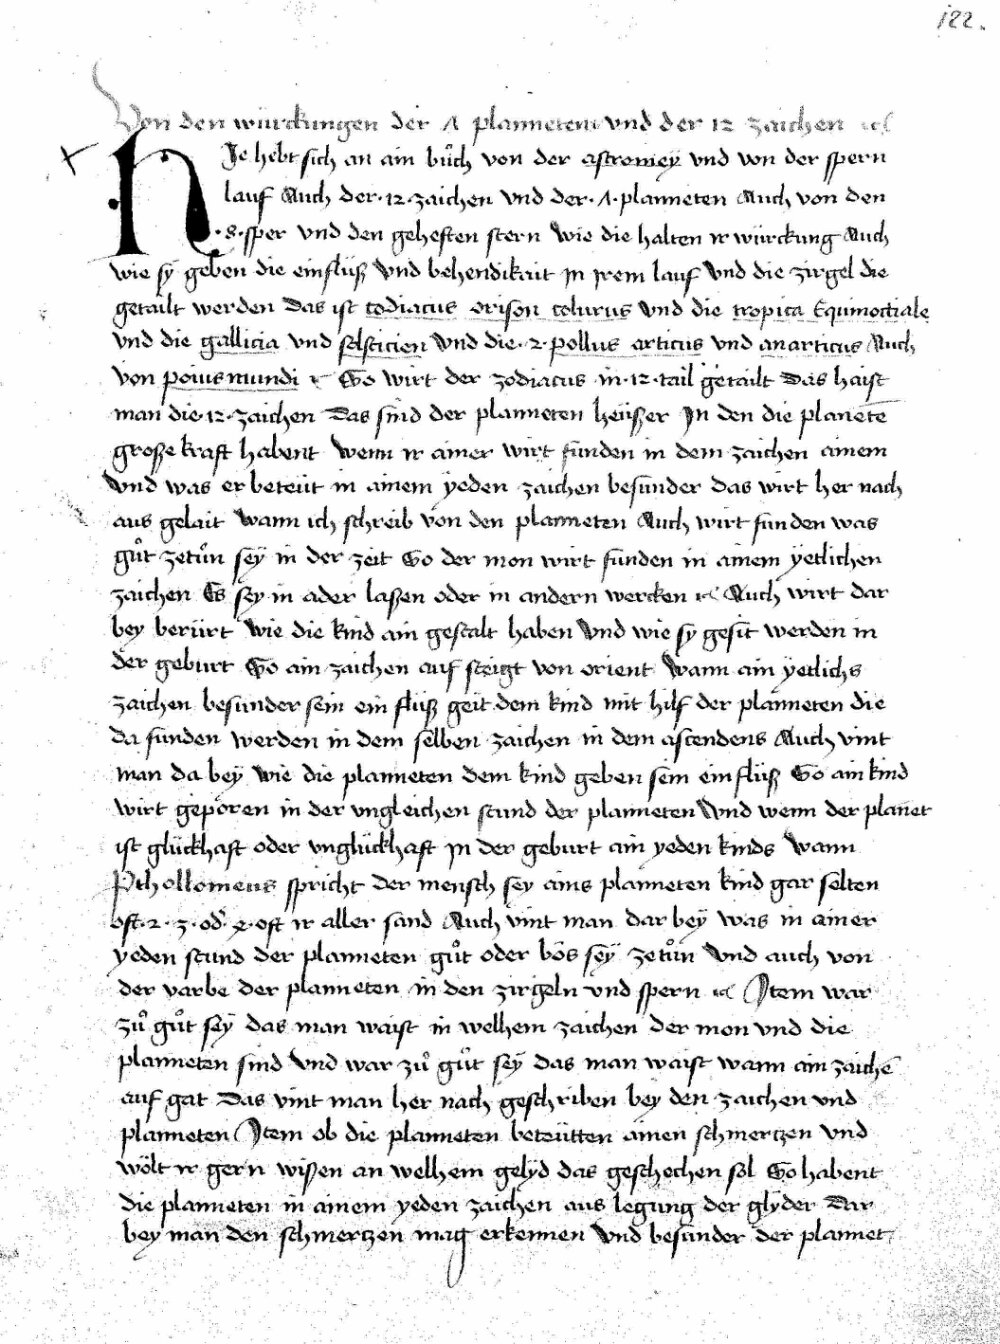 122.
Von den würckungen der 7 planneten vnd der 12 zaichen ⁊c
HJe hebt sich an ain bůch von der astromey vnd von der spern
lauf Auch der · 12 · zaichen vnd der · 7 · planneten Auch von den
· 8 · sper vnd den geheften stern Wie die halten ir würckung Auch
wie sÿ geben die einflüß Vnd behendikait Jn jrem lauf Vnd die zirgel die
getailt werden Das ist todiacus orison colurus Vnd die tropica Equinoctiale
vnd die gallicia vnd solsticien Vnd die · 2 · pollus articus vnd anarticus Auch
von poius mundi ⁊c So wirt der zodiacus in · 12 · tail getailt Das haist
man die · 12 · zaichen Das sind der planneten heüßer Jn den die planetē
große kraft habent Wenn ir ainer wirt funden in dem zaichen ainem
Vnd was er beteüt in ainem yeden zaichen besunder das wirt her nach
aus gelait Wann ich schreib von den planneten Auch wirt funden was
gůt zetůn sey in der zeit So der mon wirt funden in ainem yetlichen
zaichen Es sey in ader laßen oder in andern wercken ⁊c Auch wirt dar
bey berürt Wie die kind ain gestalt haben Vnd wie sy gesit werden in
der geburt So ain zaichen auf steigt von orient Wann ain yetlichs
zaichen besunder sein ein fluß geit dem kind mit hilf der planneten die
da funden werden in dem selben zaichen in dem ascendens Auch vint
man da bey Wie die planneten dem kind geben sein ein flüß So ain kind
wirt geporen in der vngleichen stund der planneten Vnd wenn der planet
ist glückhaft oder vnglückhaft Jn der geburt ain yeden kinds Wann
Pthollomeus spricht Der mensch sey ains planneten kind gar selten
oft · 2 · 3 · od' · 4 · oft ir aller sand Auch vint man dar bey Was in ainer
yeden stund der planneten gůt oder bös sey zetůn Vnd auch von
der varbe der planneten in den zirgeln vnd spern ⁊c Jtem war
zů gůt sey das man waist in welhem zaichen der mon vnd die
planneten sind Vnd war zů gůt sey das man waist wann ain zaichē
auf gat Das vint man her nach geschriben bey den zaichen vnd
planneten Jtem ob die planneten beteütten ainen schmertzen Vnd
wölt ir gern wißen an welhem gelyd das geschechen sol So habent
die planneten in ainem yeden zaichen aus legung der glyder Dar
bey man den schmertzen mag erkennen Vnd besunder der plannet